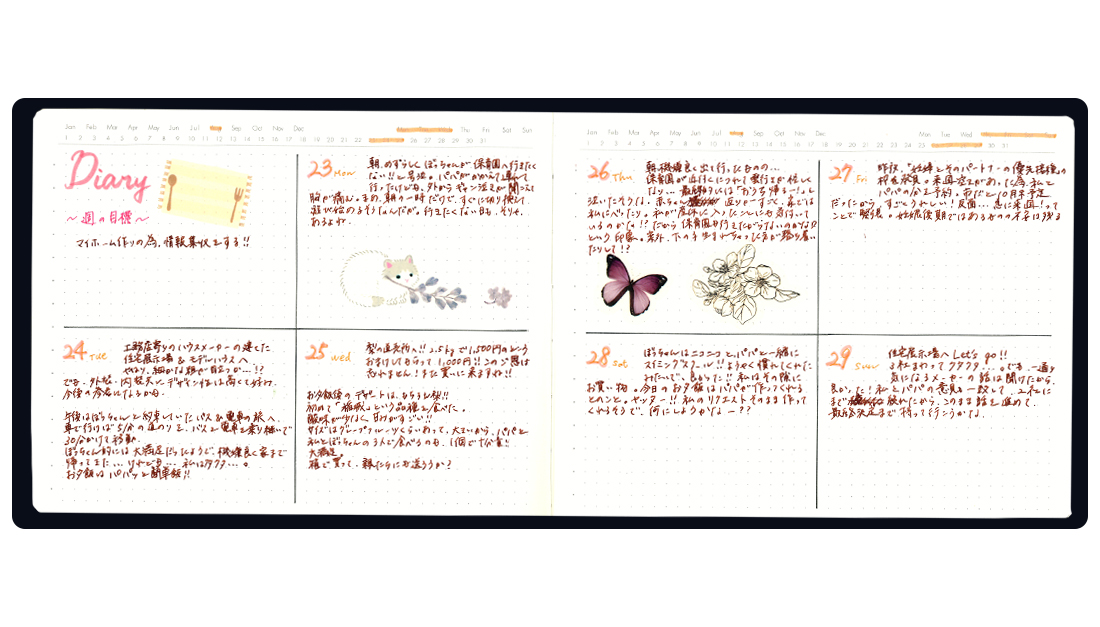 Jan Feb Mar Apr May Jun Jul Aug Sep Oct Nov Dec
Thu Fri Sat Sun
1 2 3 4 5 6 7 8 9 10 11 12 13 14 15 16 17 18 19 20 21 22
26 27 28 29 30 31
Diary
〜週の目標〜
マイホーム作りの為、情報集収をする!!
23 Mon
朝、めずらしくぼっちゃんが保育園へ行きたく
ない!!と号泣。パパがかかえて運んで
行ったけども、外からギャン泣きが聞こえて
胸が痛む。まぁ、朝の一時だけで、すぐに切り換えて
遊び始めるそうなんだが。行きたくない日も、そりゃ、
あるよね。
24 Tue
工務店寄りのハウスメーカーの建てた
住宅展示場&モデルハウスへ
でも、外壁・内装共にデザイン性は高くて好み。
今後の参考にしようかな。
午後はぼっちゃんと約束していたバス&電車の旅へ。
車で行けば5分の道のりを、バスと電車を乗り継いで
30分かけて移動。
ぼっちゃん的には大満足だったようで、機嫌良く家まで
帰ってきた…けれども…私はクタクタ…。
お夕飯はパパッと簡単飯!!
25 Wed
梨の直売所へ!!2.5kgで1,500円のという
おまけしてもらって1,000円!!このご恩は
忘れません!また買いに来ますね!!
お夕飯後のデザートは、もちろん梨!!
初めて「稲城」という品種を食べた。
酸味が少なく、甘みがすごい!!
サイズはグレープフルーツくらいあって、大きいから、パパと
私とぼっちゃんの3人で食べるのも、1個で十分量!
大満足。
箱で買って、親たちにも送ろうか?
Jan Feb Mar Apr May Jun Jul Aug Sep Oct Nov Dec
Mon Tue Wed
1 2 3 4 5 6 7 8 9 10 11 12 13 14 15 16 17 18 19 20 21 22 23 24 25
30 31
26 Thu
朝、機嫌良く出て行ったものの…
保育園が近付くにつれて雲行きが怪しく
なり…最終的には「おうち帰るー!」と
泣いたそうな。赤ちゃん返りかーすっごく、家では
私にべったり。私が産休に入ったことにも気付いて
いるのかな!?だから保育園も行きたがらないのかな?
という印象。案外、下の子生まれちゃった方が落ち着い
たりして!?
27 Fri
昨夜、「妊婦とそのパートナーの優先接種」の
枠を発見。来週空きがあった為、私と
パパの分を予約。市だと10月末予定
だったから、すごくうれしい!反面…急に来週!って
ことで緊張。妊娠後期ではあるものの不安は残る
28 Sat
ぼっちゃんはニコニコとパパと一緒に
スイミングスクール!!ようやく慣れてくれた
みたいで、良かった!!私はその隙に
お買い物。今日のお夕飯はパパが作ってくれる
とのこと。ヤッター!!私のリクエストそのまま作って
くれるそうで、何にしようかなー??
29 Sun
住宅展示場へ Let's go!!
3社まわってクタクタ…。でも、一通り
気になるメーカーの話は聞けたから、
良かった!私とパパの意見も一致して、2社に
まで絞れたから、このまま話を進めて、
最終決定まで持って行こうかな。